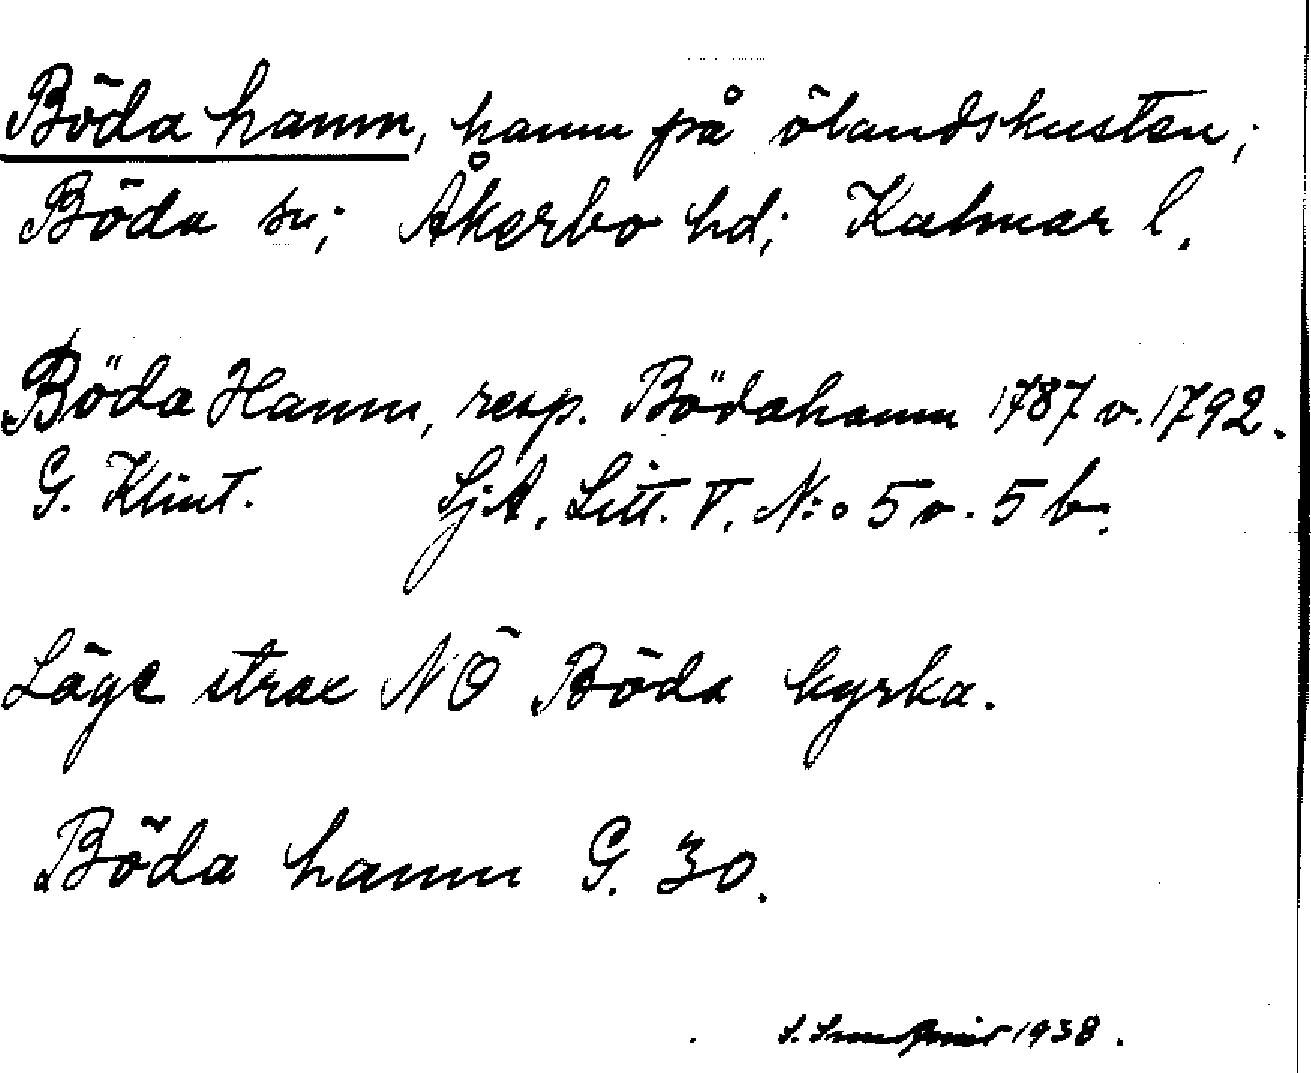 Böda hamn, hamn på ölandskusten;
Böda sn; Åkerbo hd; Kalmar l.
Böda Hamn, resp. Bödahamn 1787 o. 1792.
G. Klint. SjA. Litt. V. N:o 5 o. 5 b.
Läge strax NÖ Böda kyrka.
Böda hamn G. 30.
1938.